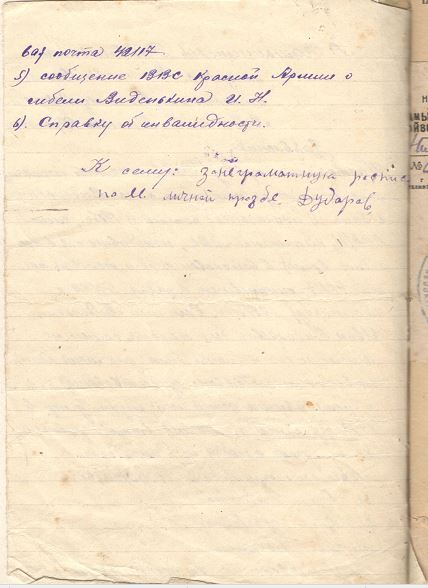 вая почта 42117.
5) сообщение ВВС Красной Армии о
гибели Виденькина И. Н.
6). Справку об инвалидности.
К сему: за неграмотную роспис.
по личной прозбе